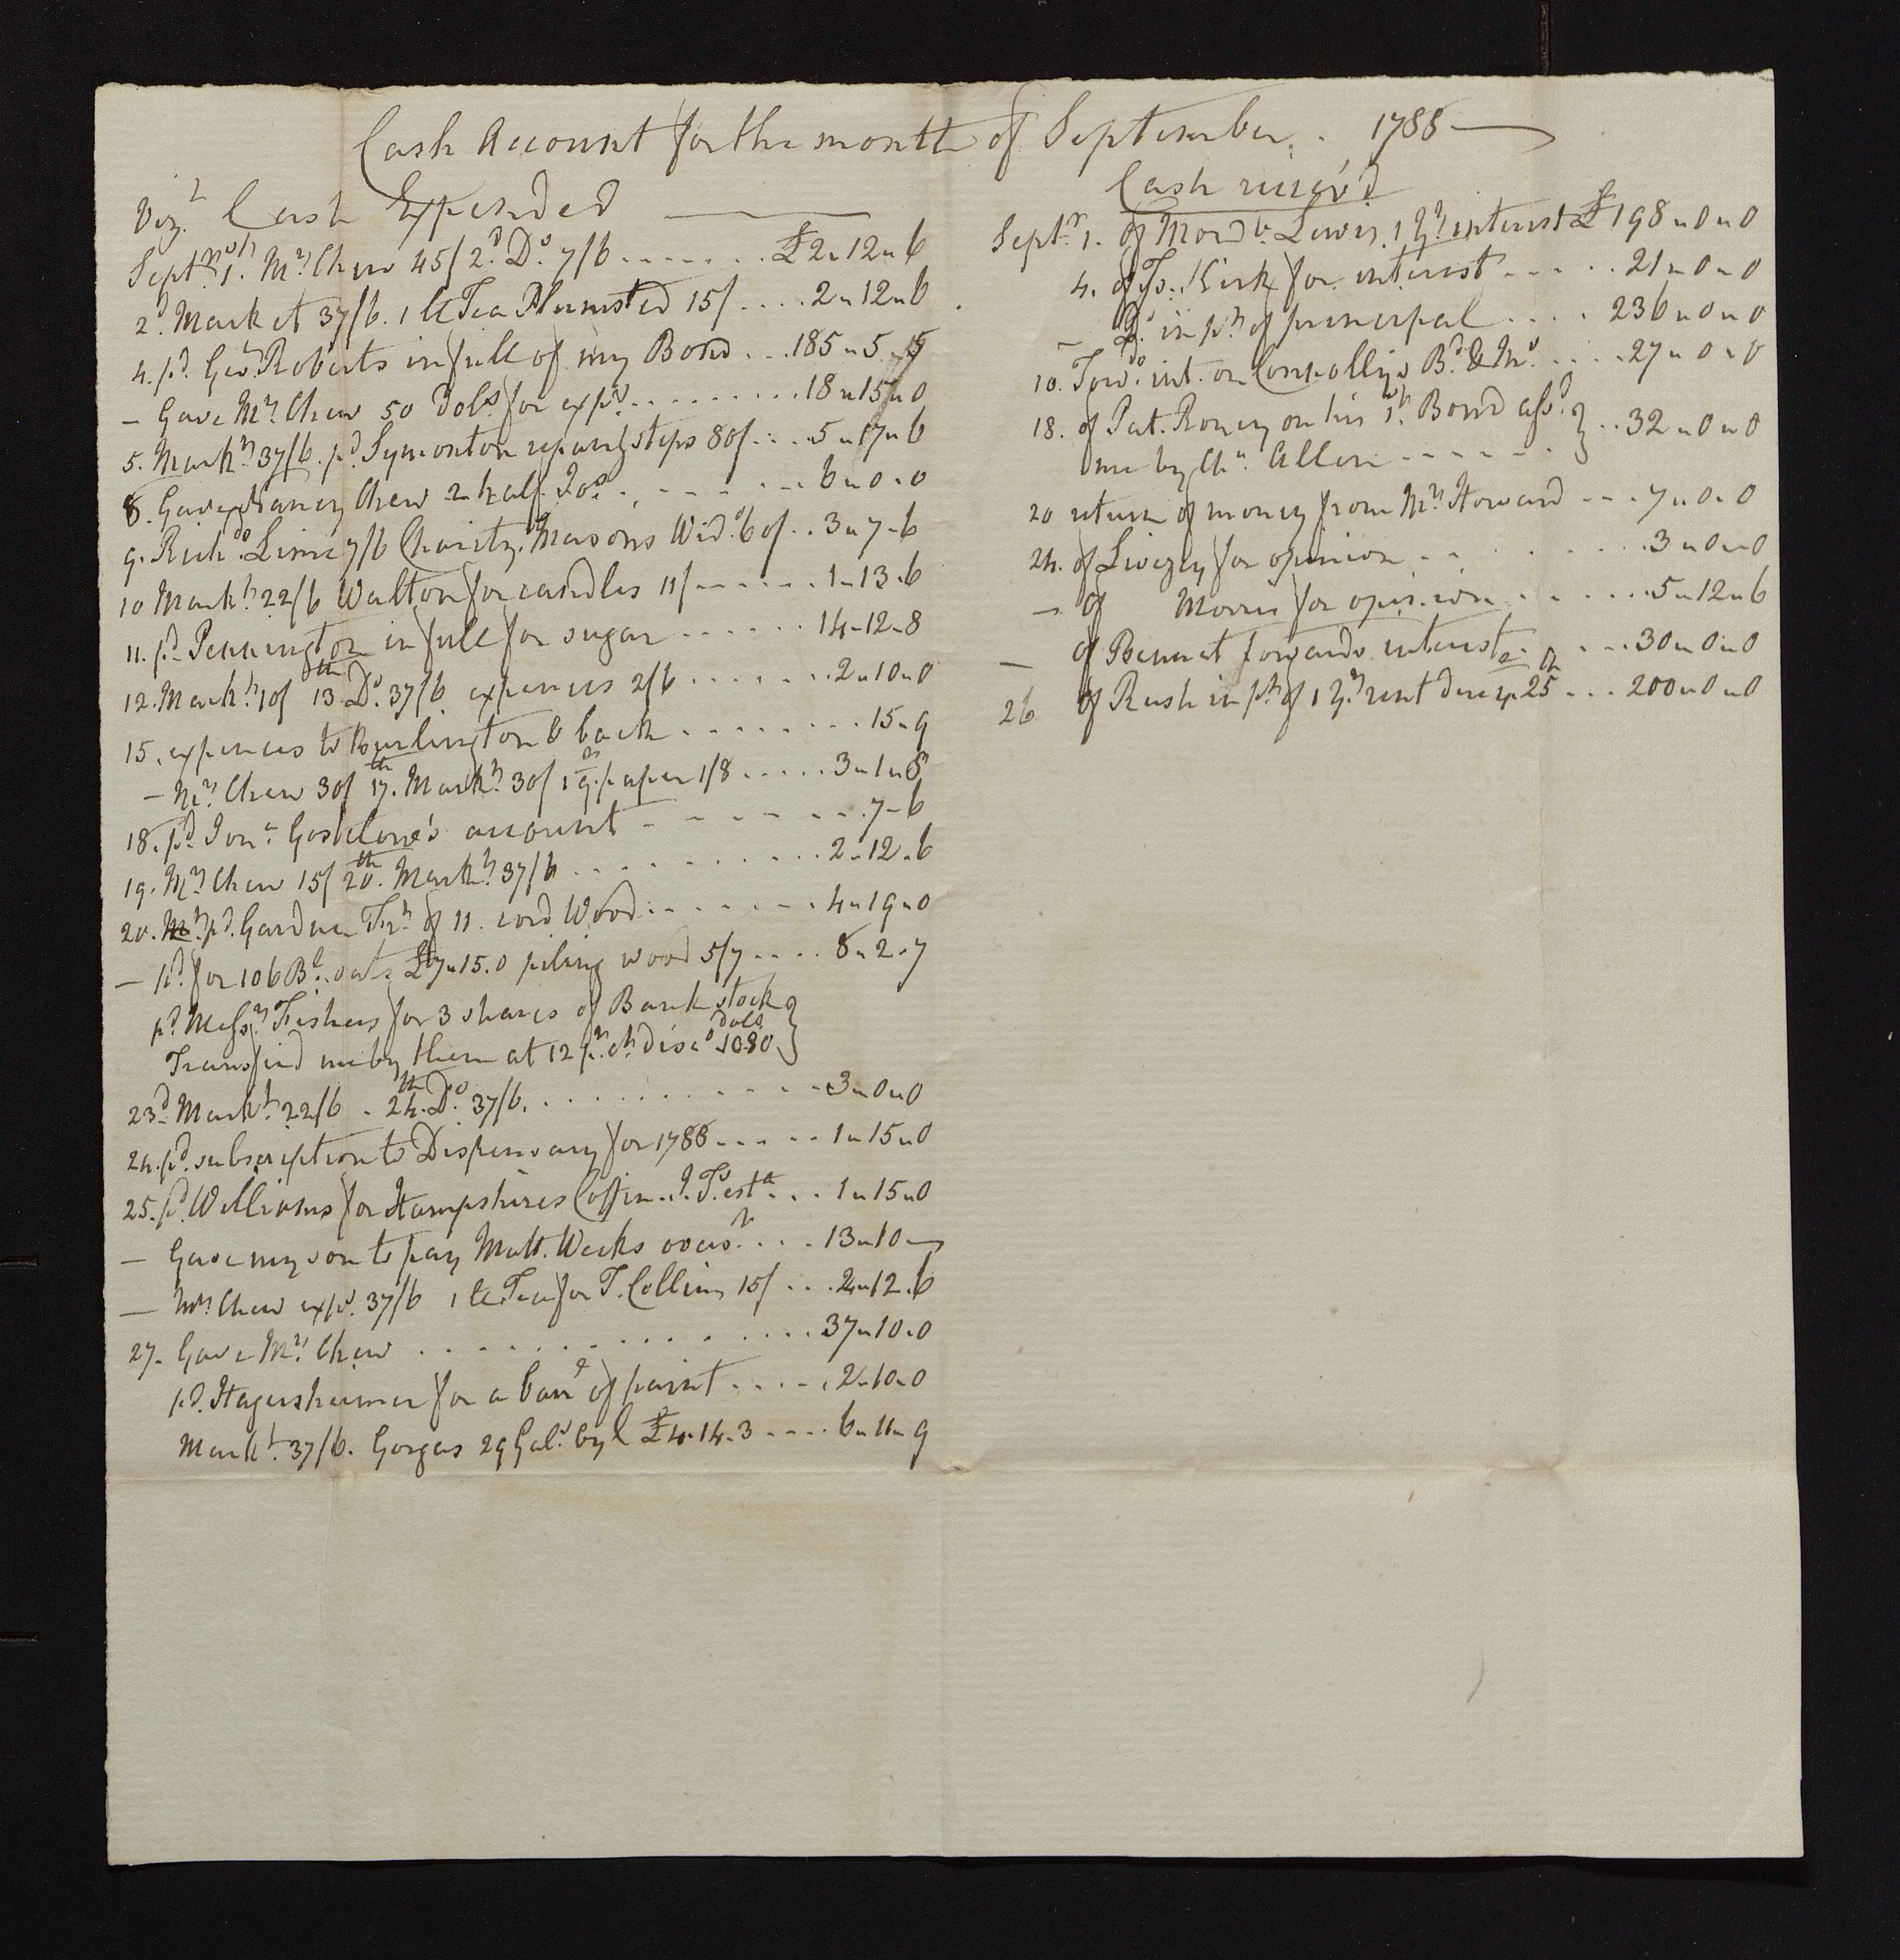 Cash Account for the month of September . 1788
Vizt. Cash Expended
Septr. 1. Mrs. Chew 45/ 2d. Do. 7/6 ....... £2 " 12 " 6
2d. Market 37/6. 1 lb Tea Plumsted 15/ .... 2 " 12 " 6
4. pd. Geo. Roberts in full of my Bond ... 185 " 5 " 5
— Gave Mrs. Chew 50 Dols. for exps. ......... 18 " 15 " 0
5. Markt. 37/6. pd. Symonton repairg steps 80/ .... 5 " 17 " 6
8. Gave Nancy Chew 2 half Jos. ....... 6 " 0 " 0
9. Richd. Lime 7/6 Charity. Masons Wido. 60/ .. 3 " 7 - 6
10 Markt. 22/6 Walton for candles 11/ ...... 1 - 13 - 6
11. pd. Pennington in full for sugar ...... 14 - 12 - 8
12. Markt. 10/ 13th. Do. 37/6 expences 2/6 ....... 2 " 10 " 0
15. expences to Burlington & back ....... 15 - 9
— Mrs. Chew 30/ 17th. Markt. 30/ 19th. paper 1/8 ..... 3 " 1 " 8
18. pd. Jona. Gostelowe's account ....... 7 - 6
19. Mrs. Chew 15/ 20th. Markt. 37/6 .......... 2 - 12 - 6
20. pd. Gardner Frt. of 11. cord Wood ....... 4 " 19 " 0
— pd. for 106 Bl. oats £7 " 15. 0 piling wood 5/7 .... 8 " 2 - 7
pd. Messrs. Fishers for 3 shares of Bank stock
Transferd me by them at 12 pr. ct. disco. dols 1080
23d. Markt. 22/6 . 24th. Do. 37/6. .......... 3 " 0 " 0
24. pd. subscription to Dispensary for 1788 ..... 1 " 15 " 0
25. pd. Williams for Hampshires Coffin . J. T. esta. ... 1 " 15 " 0
— Gave my son to pay Matt. Weeks ....  13 " 10 —
— Mrs. Chew exps. 37/6 1 lb Tea for T. Collins 15/ ... 2 " 12 . 6
27. Gave Mrs. Chew ........... 37 " 10 . 0
pd. Hagersheimer for a barrl of paint ..... 2 - 10 - 0
Markt. 37/6. Gorgas 29 Gals. Oyl £4 - 14 - 3 .... 6 - 11 - 9
Cash receiv'd
Septr. 1. of Mordi. Lewis. 1 Yrs. interest £198 " 0 " 0
4. of Js. Kirk for interest ..... 21 " 0 " 0
— Do. in pt. of principal .... 236 " 0 " 0
10. Towds. int. on Connollys Bd. & Me. .... 27 " 0 " 0
18. of Pat. Roney on his 1st. Bond assd.
me by Ch. Allen ...... 32 " 0 " 0
20 return of money from Mrs. Howard ... 7 " 0 . 0
24. of Livezey for opinion ......... 3 " 0 " 0
— of Morris for opinion ....... 5 " 12 " 6
— of Bennet towards interest ..... 30 " 0 " 0
26 of Rush in pt. of 1 Yrs. rent due 25th ... 200 " 0 " 0